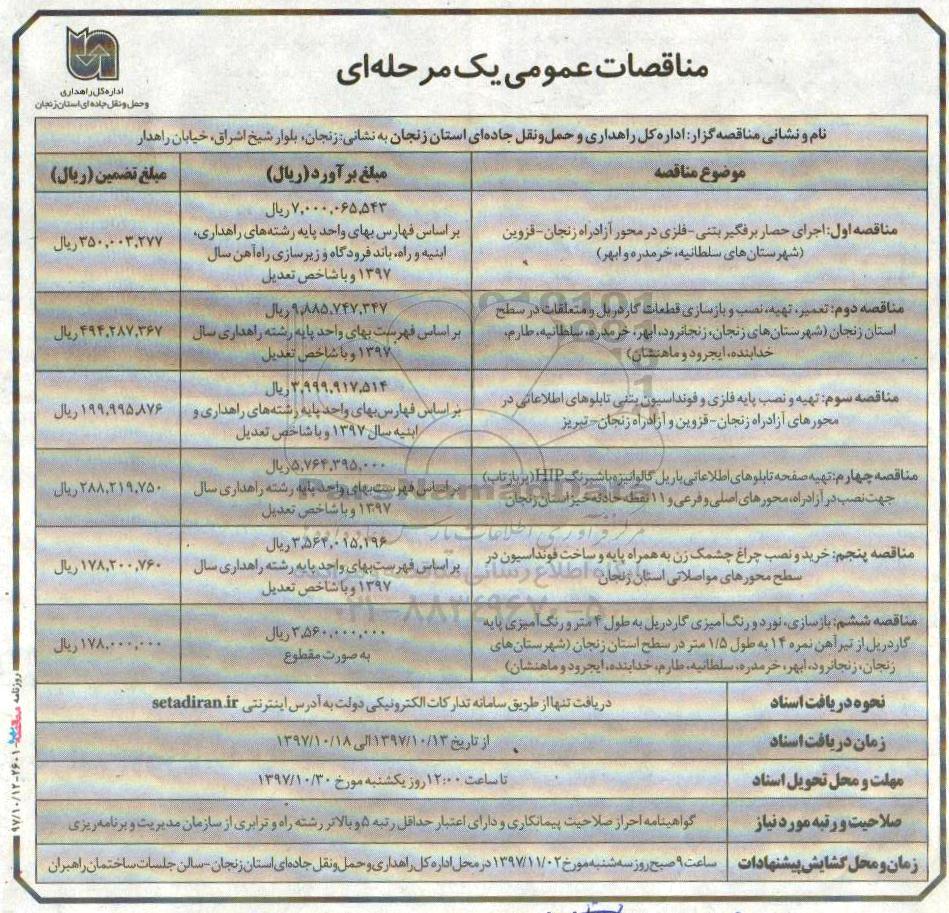 مناقصات عمومی یک مرحله‌ای
اداره کل راهداری
و حمل و نقل جاده ای استان زنجان
نام و نشانی مناقصه گزار: اداره کل راهداری و حمل و نقل جاده‌ای استان زنجان به نشانی: زنجان، بلوار شیخ اشراق، خیابان راهدار
موضوع مناقصه
مبلغ برآورد (ریال)
مبلغ تضمین (ریال)
مناقصه اول: اجرای حصار برفگیر بتنی-فلزی در محور آزادراه زنجان-قزوین
(شهرستان‌های سلطانیه، خرمدره و ابهر)
۷,۰۰۰,۰۶۵,۵۴۳ ریال
بر اساس فهارس بهای واحد پایه رشته‌های راهداری،
ابنیه و راه، باند فرودگاه و زیرسازی راه‌آهن سال
۱۳۹۷ و با شاخص تعدیل
۳۵۰,۰۰۳,۲۷۷ ریال
مناقصه دوم: تعمیر، تهیه، نصب و بازسازی قطعات گاردریل و متعلقات در سطح
استان زنجان (شهرستان‌های زنجان، زنجانرود، ابهر، خرمدره، سلطانیه، طارم،
خدابنده، ایجرود و ماهنشان)
۹,۸۸۵,۷۴۷,۳۴۷ ریال
بر اساس فهرست بهای واحد پایه رشته راهداری سال
۱۳۹۷ و با شاخص تعدیل
۴۹۴,۲۸۷,۳۶۷ ریال
مناقصه سوم: تهیه و نصب پایه فلزی و فونداسیون بتنی تابلوهای اطلاعاتی در
محورهای آزادراه زنجان-قزوین و آزادراه زنجان-تبریز
۳,۹۹۹,۹۱۷,۵۱۴ ریال
بر اساس فهارس بهای واحد پایه رشته‌های راهداری و
ابنیه سال ۱۳۹۷ و با شاخص تعدیل
۱۹۹,۹۹۵,۸۷۶ ریال
مناقصه چهارم: تهیه صفحه تابلوهای اطلاعاتی با ریل گالوانیزه با شبرنگ HIP (پربازتاب)
جهت نصب در آزادراه، محورهای اصلی و فرعی و ۱۱ نقطه حادثه خیز استان زنجان
۵,۷۶۴,۳۹۵,۰۰۰ ریال
بر اساس فهرست بهای واحد پایه رشته راهداری سال
۱۳۹۷ و با شاخص تعدیل
۲۸۸,۲۱۹,۷۵۰ ریال
مناقصه پنجم: خرید و نصب چراغ چشمک زن به همراه پایه و ساخت فونداسیون در
سطح محورهای مواصلاتی استان زنجان
۳,۵۶۴,۰۱۵,۱۹۶ ریال
بر اساس فهرست بهای واحد پایه رشته راهداری سال
۱۳۹۷ و با شاخص تعدیل
۱۷۸,۲۰۰,۷۶۰ ریال
مناقصه ششم: بازسازی، نورد و رنگ آمیزی گاردریل به طول ۴ متر و رنگ آمیزی پایه
گاردریل از تیرآهن نمره ۱۴ به طول ۱/۵ متر در سطح استان زنجان (شهرستان‌های
زنجان، زنجانرود، ابهر، خرمدره، سلطانیه، طارم، خدابنده، ایجرود و ماهنشان)
۳,۵۶۰,۰۰۰,۰۰۰ ریال
به صورت مقطوع
۱۷۸,۰۰۰,۰۰۰ ریال
نحوه دریافت اسناد
دریافت تنها از طریق سامانه تدارکات الکترونیکی دولت به آدرس اینترنتی setadiran.ir
زمان دریافت اسناد
از تاریخ ۱۳۹۷/۱۰/۱۳ الی ۱۳۹۷/۱۰/۱۸
مهلت و محل تحویل اسناد
تا ساعت ۱۲:۰۰ روز یکشنبه مورخ ۱۳۹۷/۱۰/۳۰
صلاحیت و رتبه مورد نیاز
گواهینامه احراز صلاحیت پیمانکاری و دارای اعتبار حداقل رتبه ۵ و بالاتر رشته راه و ترابری از سازمان مدیریت و برنامه‌ریزی
زمان و محل گشایش پیشنهادات
ساعت ۹ صبح روز سه شنبه مورخ ۱۳۹۷/۱۱/۰۲ در محل اداره کل راهداری و حمل و نقل جاده‌ای استان زنجان-سالن جلسات ساختمان راهبران
روزنامه مناقصه ۲۶۰۱-۹۷/۱۰/۱۲
۰۲۱-۸۸۳۴۹۶۷۰-۵